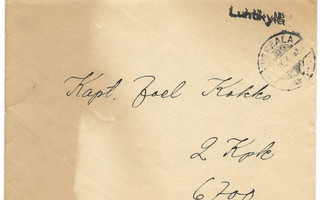 Luhtikylä
Kapt. Joel Kokko
2 Kpk
6700